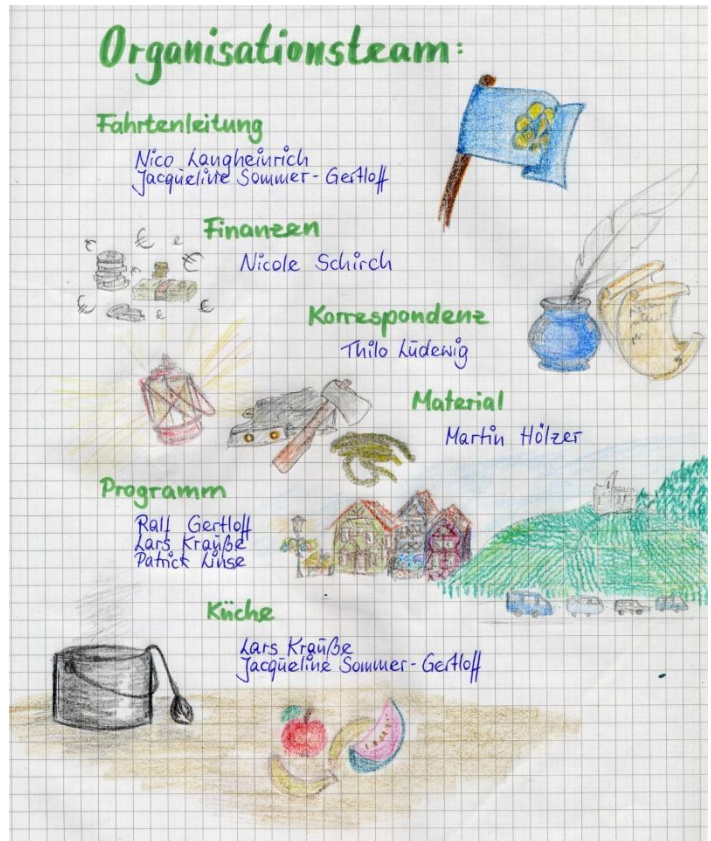 Organisationsteam:
Fahrtenleitung
Nico Langheinrich
Jacqueline Sommer-Gertloff
Finanzen
Nicole Schirch
Korrespondenz
Thilo Lüdewig
Material
Martin Hölzer
Programm
Ralf Gertloff
Lars Krauße
Patrick Linse
Küche
Lars Krauße
Jacqueline Sommer-Gertloff